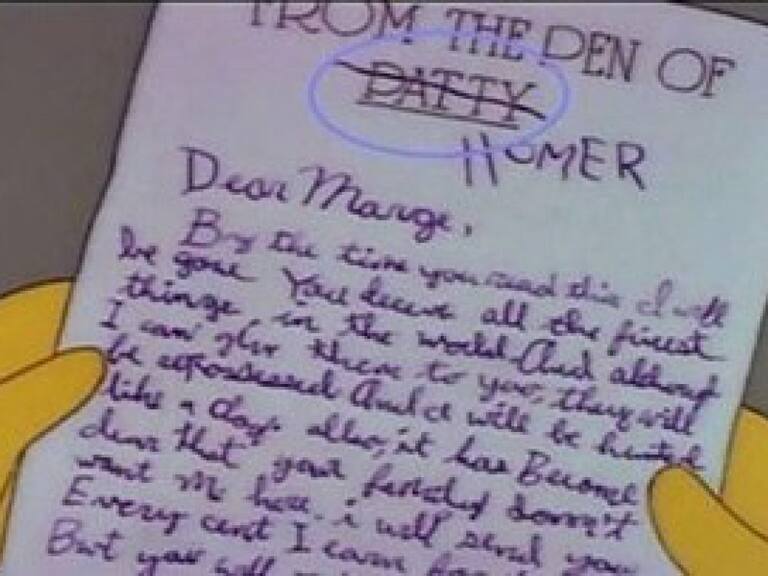 FROM THE DEN OF
DATTY
HOMER
Dear Marge,
By the time you read this I will
be gone You deserve all the finest
things in the world And although
I can give them to you, they will
be repossessed And I will be hunted
like a dog. also, it has Become
clear that your family doesn't
want me here. i will send you
Every cent I earn for
But you will